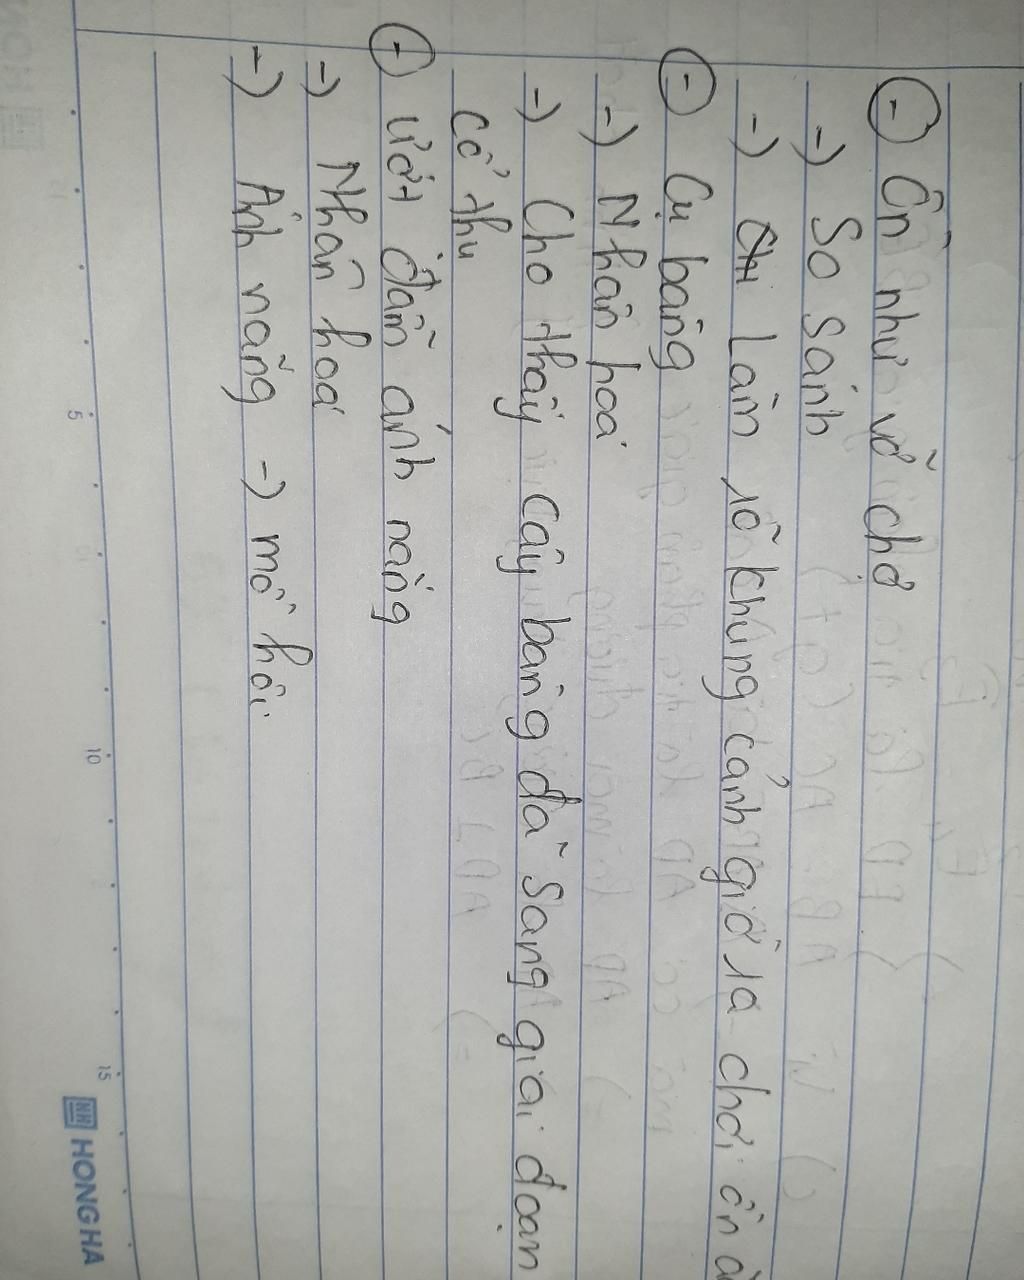 - Ồn như vỡ chợ
-> So sánh
-> Làm rõ khung cảnh giờ ra chơi ồn
- Cụ bàng
-> Nhân hoá
-> Cho thấy cây bàng đã sang giai đoạn
cổ thụ
- Ướt đẫm ánh nắng
-> Nhân hoá
-> Ánh nắng -> mồ hôi
5
10
15
HONG HA